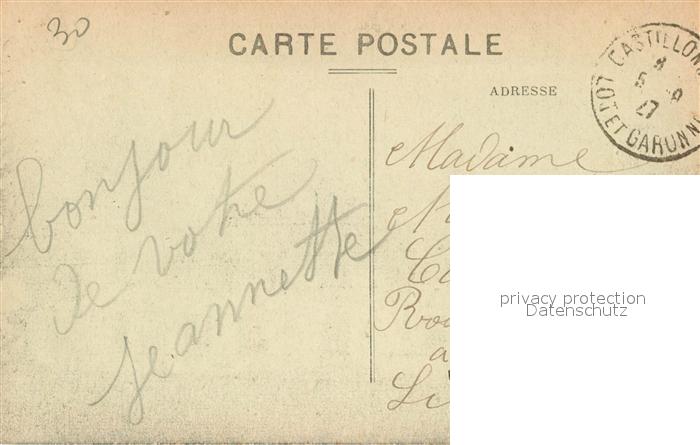 30
CARTE POSTALE
ADRESSE
CASTILLON
LOT ET GARONNE
8
27
bonjour
de votre
jeannette
Madame
privacy protection
Datenschutz